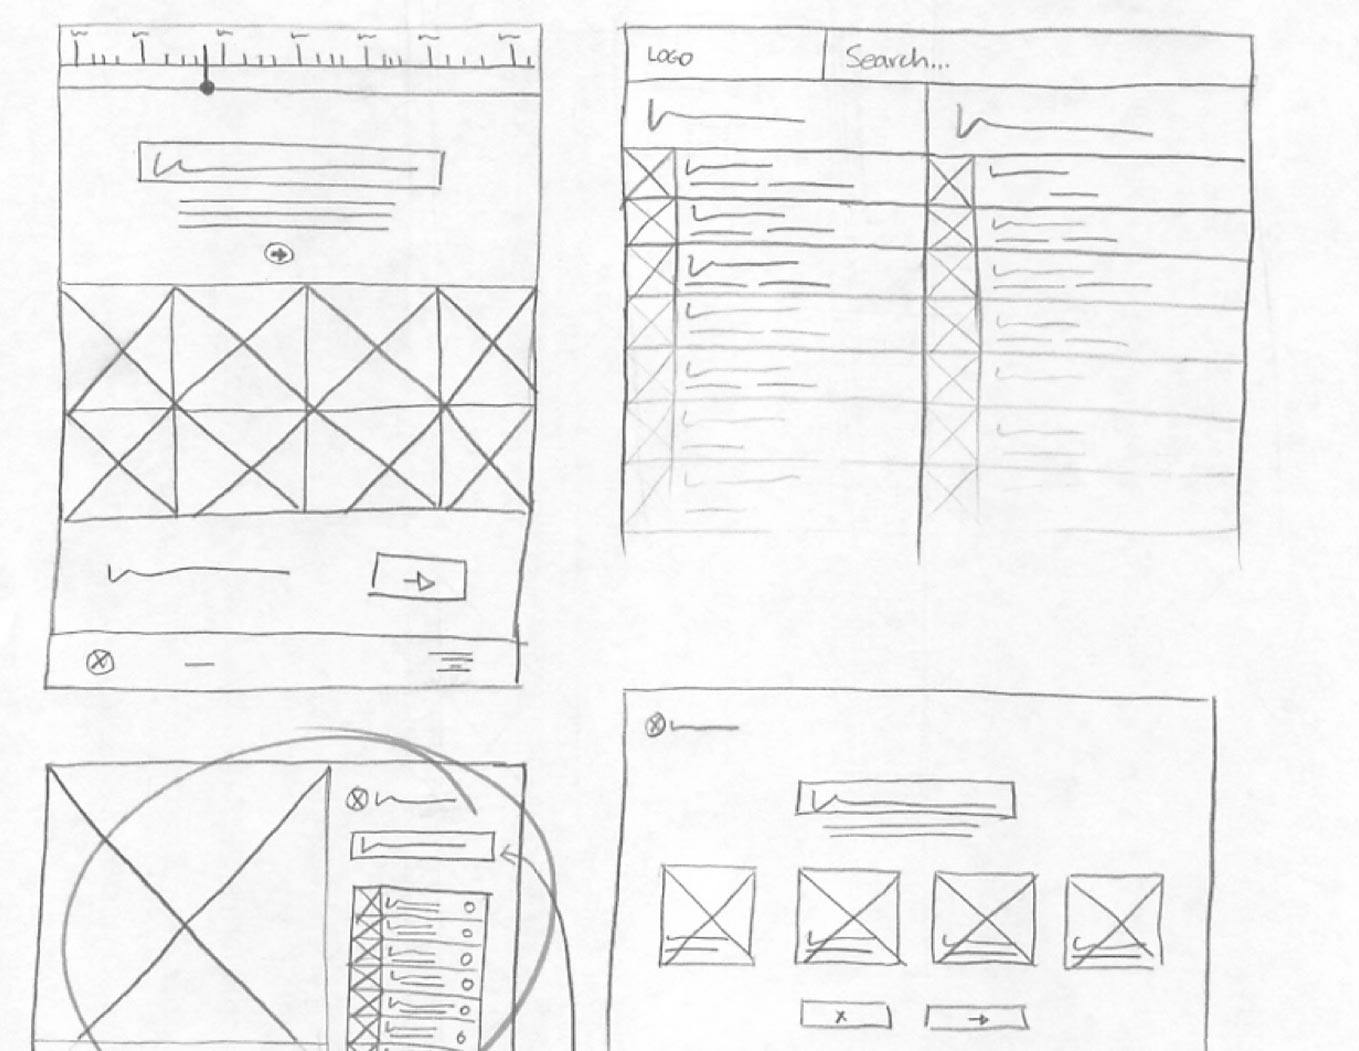 LOGO
Search...